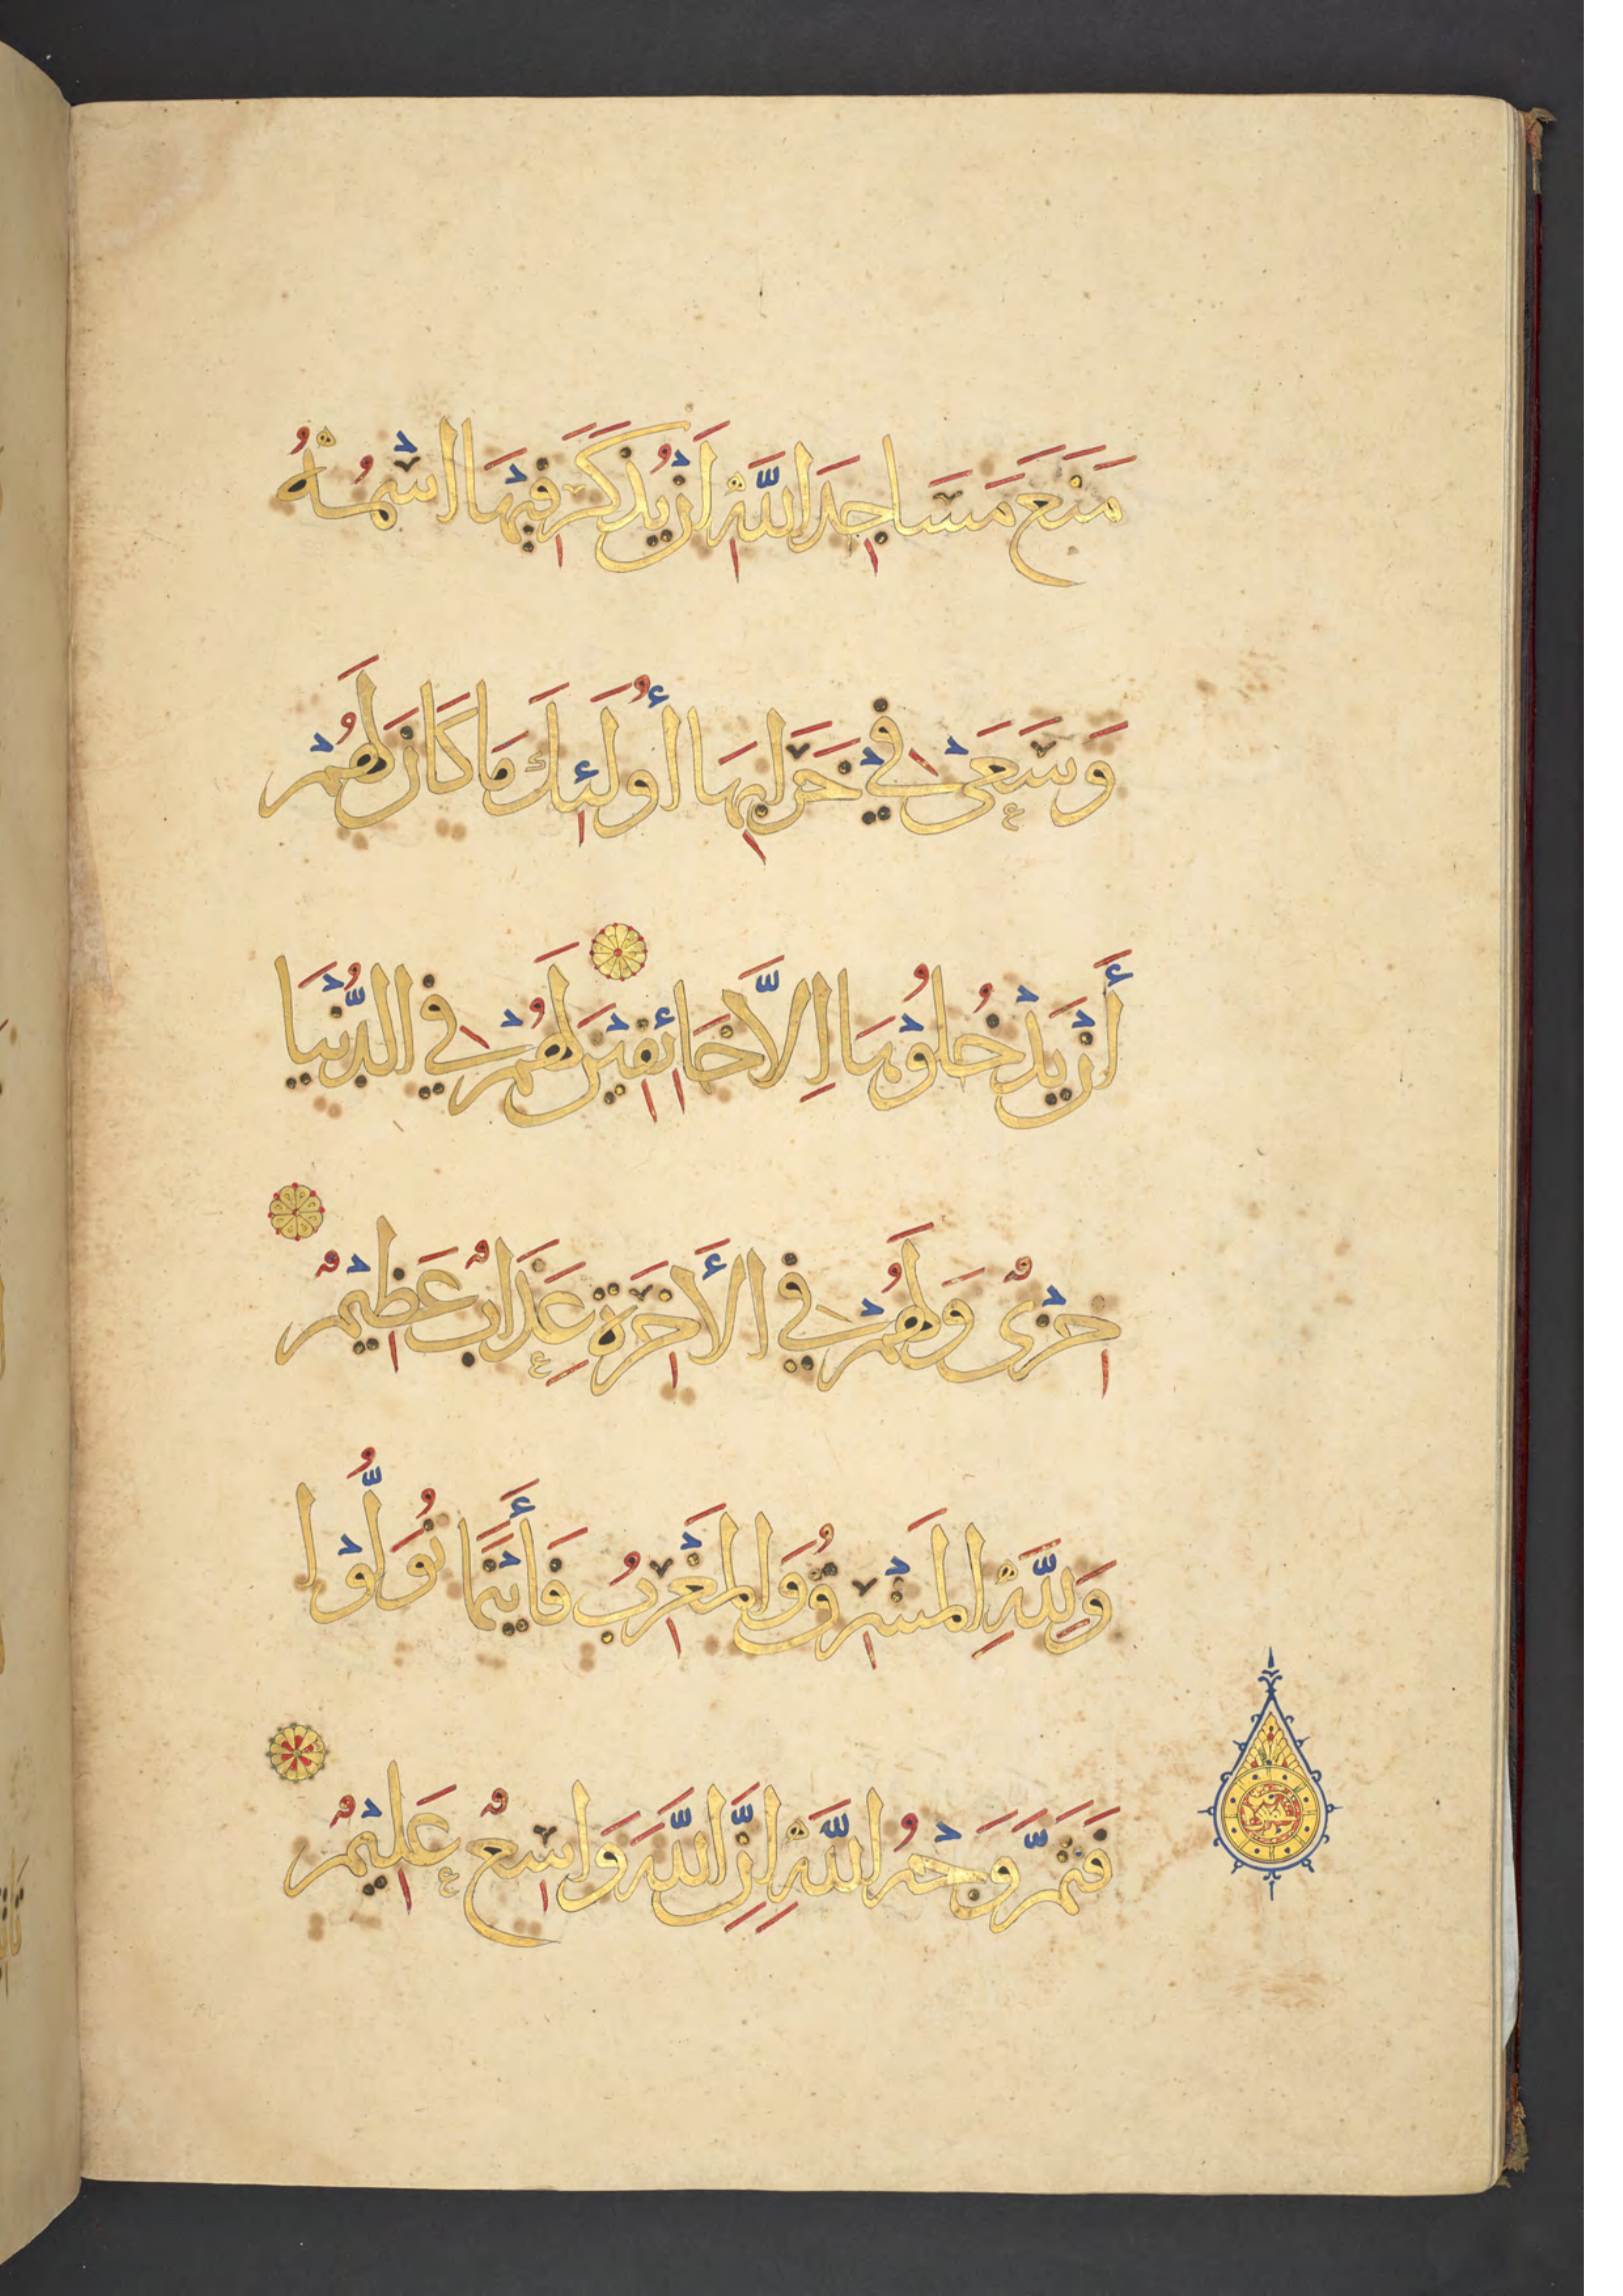 مَنَعَ مَسَاجِدَ اللَّهِ اَنْ يُذْكَرَ فِيْهَا اسْمُهُ
وَسَعَىٰ فِيْ خَرَابِهَا أُولَئِكَ مَا كَانَ لَهُمْ
أَنْ يَدْخُلُوْهَا اِلَّا خَائِفِيْنَ لَهُمْ فِي الدُّنْيَا
خِزْيٌ وَلَهُمْ فِي الأَخِرَةِ عَذَابٌ عَظِيْمٌ
وَلِلَّهِ المَشْرِقُ وَالمَغْرِبُ فَأَيْنَمَا تُوَلُّوْا
فَثَمَّ وَجْهُ اللَّهِ اِنَّ اللَّهَ وَاسِعٌ عَلِيْمٌ